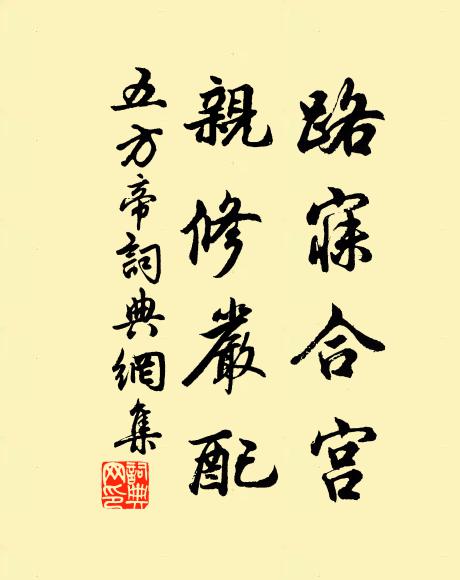 路寐合宫
親修嚴配
五方帝詞典網集
詞典
网印